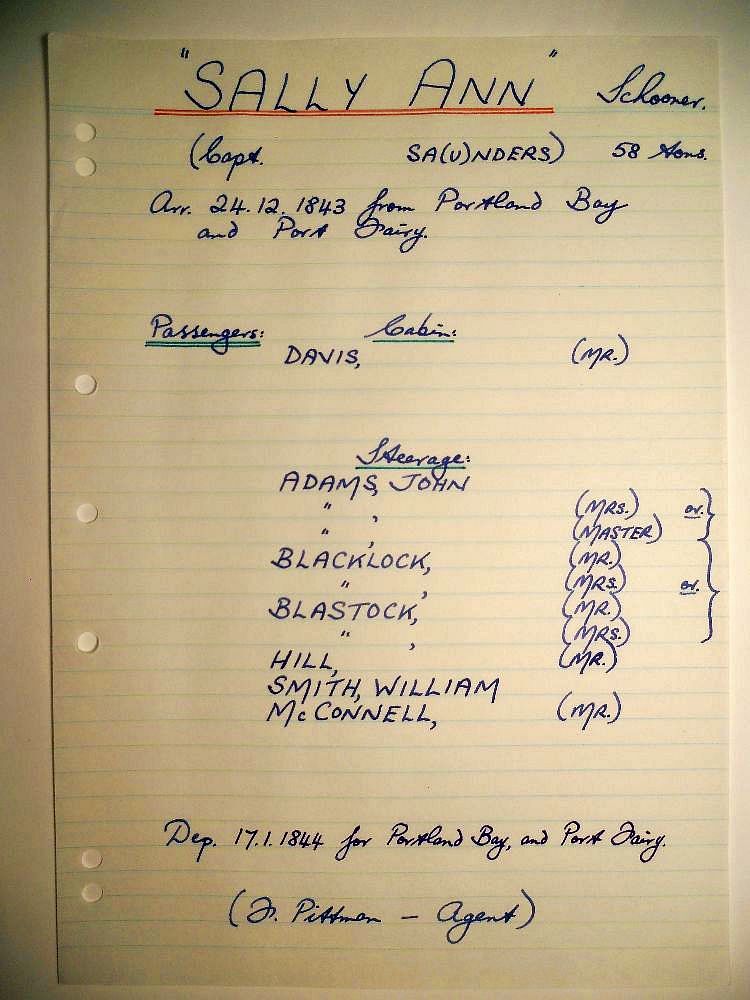 "SALLY ANN" Schooner.
(Capt. SA(U)NDERS) 58 tons.
Arr. 24.12.1843 from Portland Bay
and Port Fairy.
Passengers: Cabin:
DAVIS, (MR.)
Steerage:
ADAMS, JOHN
" , (MRS.) or.
" , (MASTER)
BLACKLOCK, (MR.)
" , (MRS.) or.
BLASTOCK, (MR.)
" , (MRS.)
HILL, (MR.)
SMITH, WILLIAM
McCONNELL, (MR.)
Dep. 17.1.1844 for Portland Bay, and Port Fairy.
(J. Pittman - Agent)